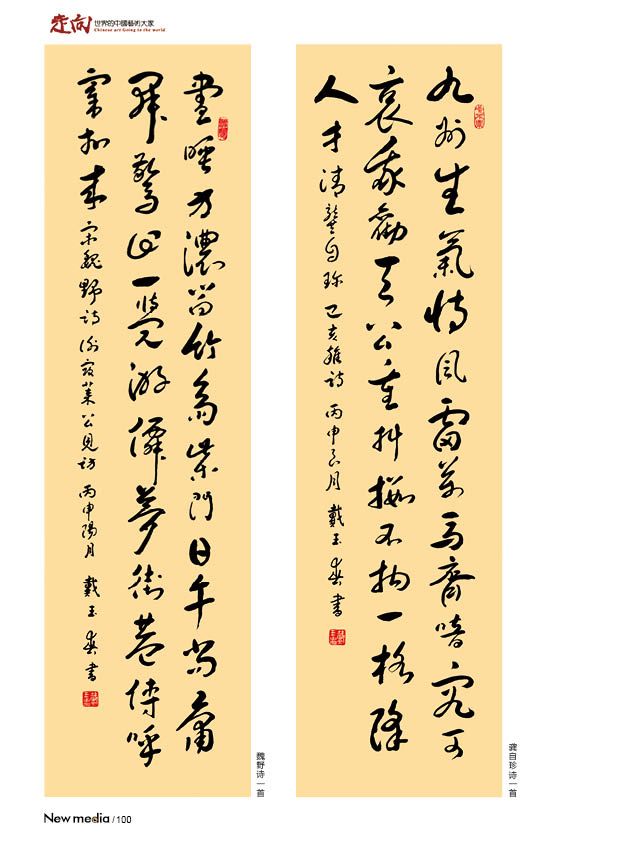 走向
世界的中國藝術大家
Chinese art Going to the world
九州生氣恃風雷萬馬齊喑究可
哀我勸天公重抖擻不拘一格降
人才 清龔自珍己亥雜詩 丙申良月 戴玉春書
龚自珍诗一首
晝睡方濃向竹齋柴門日午尚慵
開驚回一覺游僊夢街巷傳呼
宰相來 宋魏野詩謝寇萊公見訪 丙申陽月 戴玉春書
魏野诗一首
New media / 100